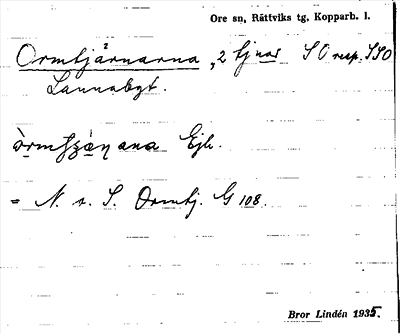 Ore sn, Rättviks tg, Kopparb. l.
Ormtjärnarna, 2 tjnar SO resp. SSO
2
Lannabgt.
Ejh.
= N. o. S. Ormtj. G 108.
Bror Lindén 1935.